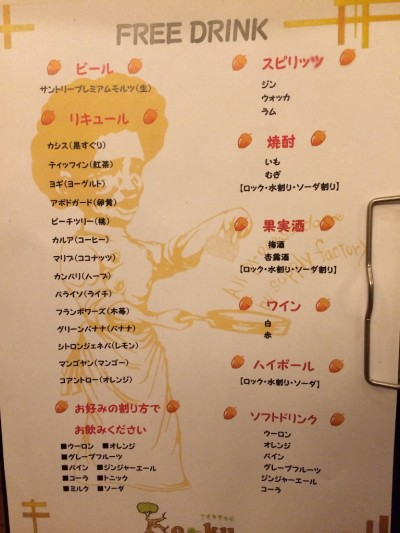 FREE DRINK
ビール
サントリープレミアムモルツ(生)
リキュール
カシス(黒すぐり)
ティッフィン(紅茶)
ヨギ(ヨーグルト)
アボガード(卵黄)
ピーチツリー(桃)
カルア(コーヒー)
マリブ(ココナッツ)
カンパリ(ハーブ)
パライソ(ライチ)
フランボワーズ(木苺)
グリーンバナナ(バナナ)
シトロンジュネバ(レモン)
マンゴヤン(マンゴー)
コアントロー(オレンジ)
お好みの割り方で
お飲みください
■ウーロン ■オレンジ
■グレープフルーツ
■パイン ■ジンジャーエール
■コーラ ■トニック
■ミルク ■ソーダ
スピリッツ
ジン
ウォッカ
ラム
焼酎
いも
むぎ
【ロック・水割り・ソーダ割り】
果実酒
梅酒
杏露酒
【ロック・水割り・ソーダ割り】
ワイン
白
赤
ハイボール
【ロック・水割り・ソーダ】
ソフトドリンク
ウーロン
オレンジ
パイン
グレープフルーツ
ジンジャーエール
コーラ